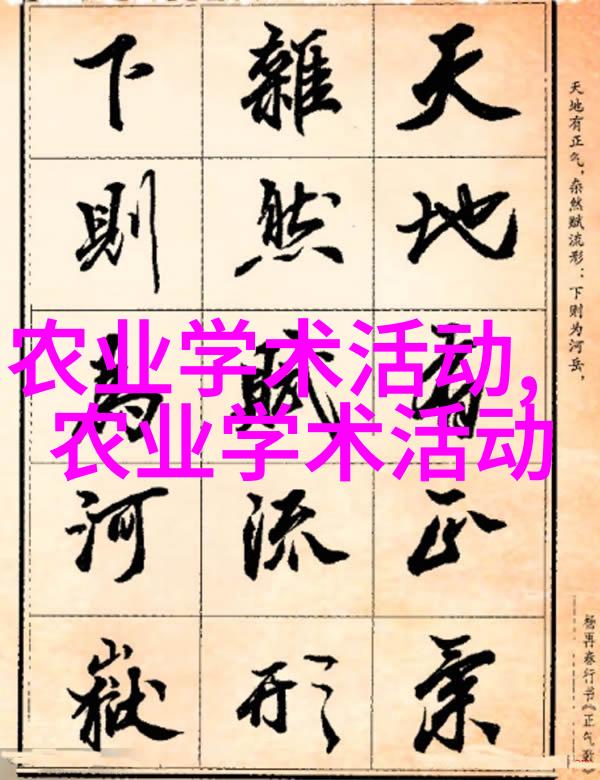 天地有正气，杂然赋流形：下则为河岳，
杨再春行书《正气歌》
天地有正氣
雜然賦流形
下則為河嶽
农业学术活动,
农业学术活动